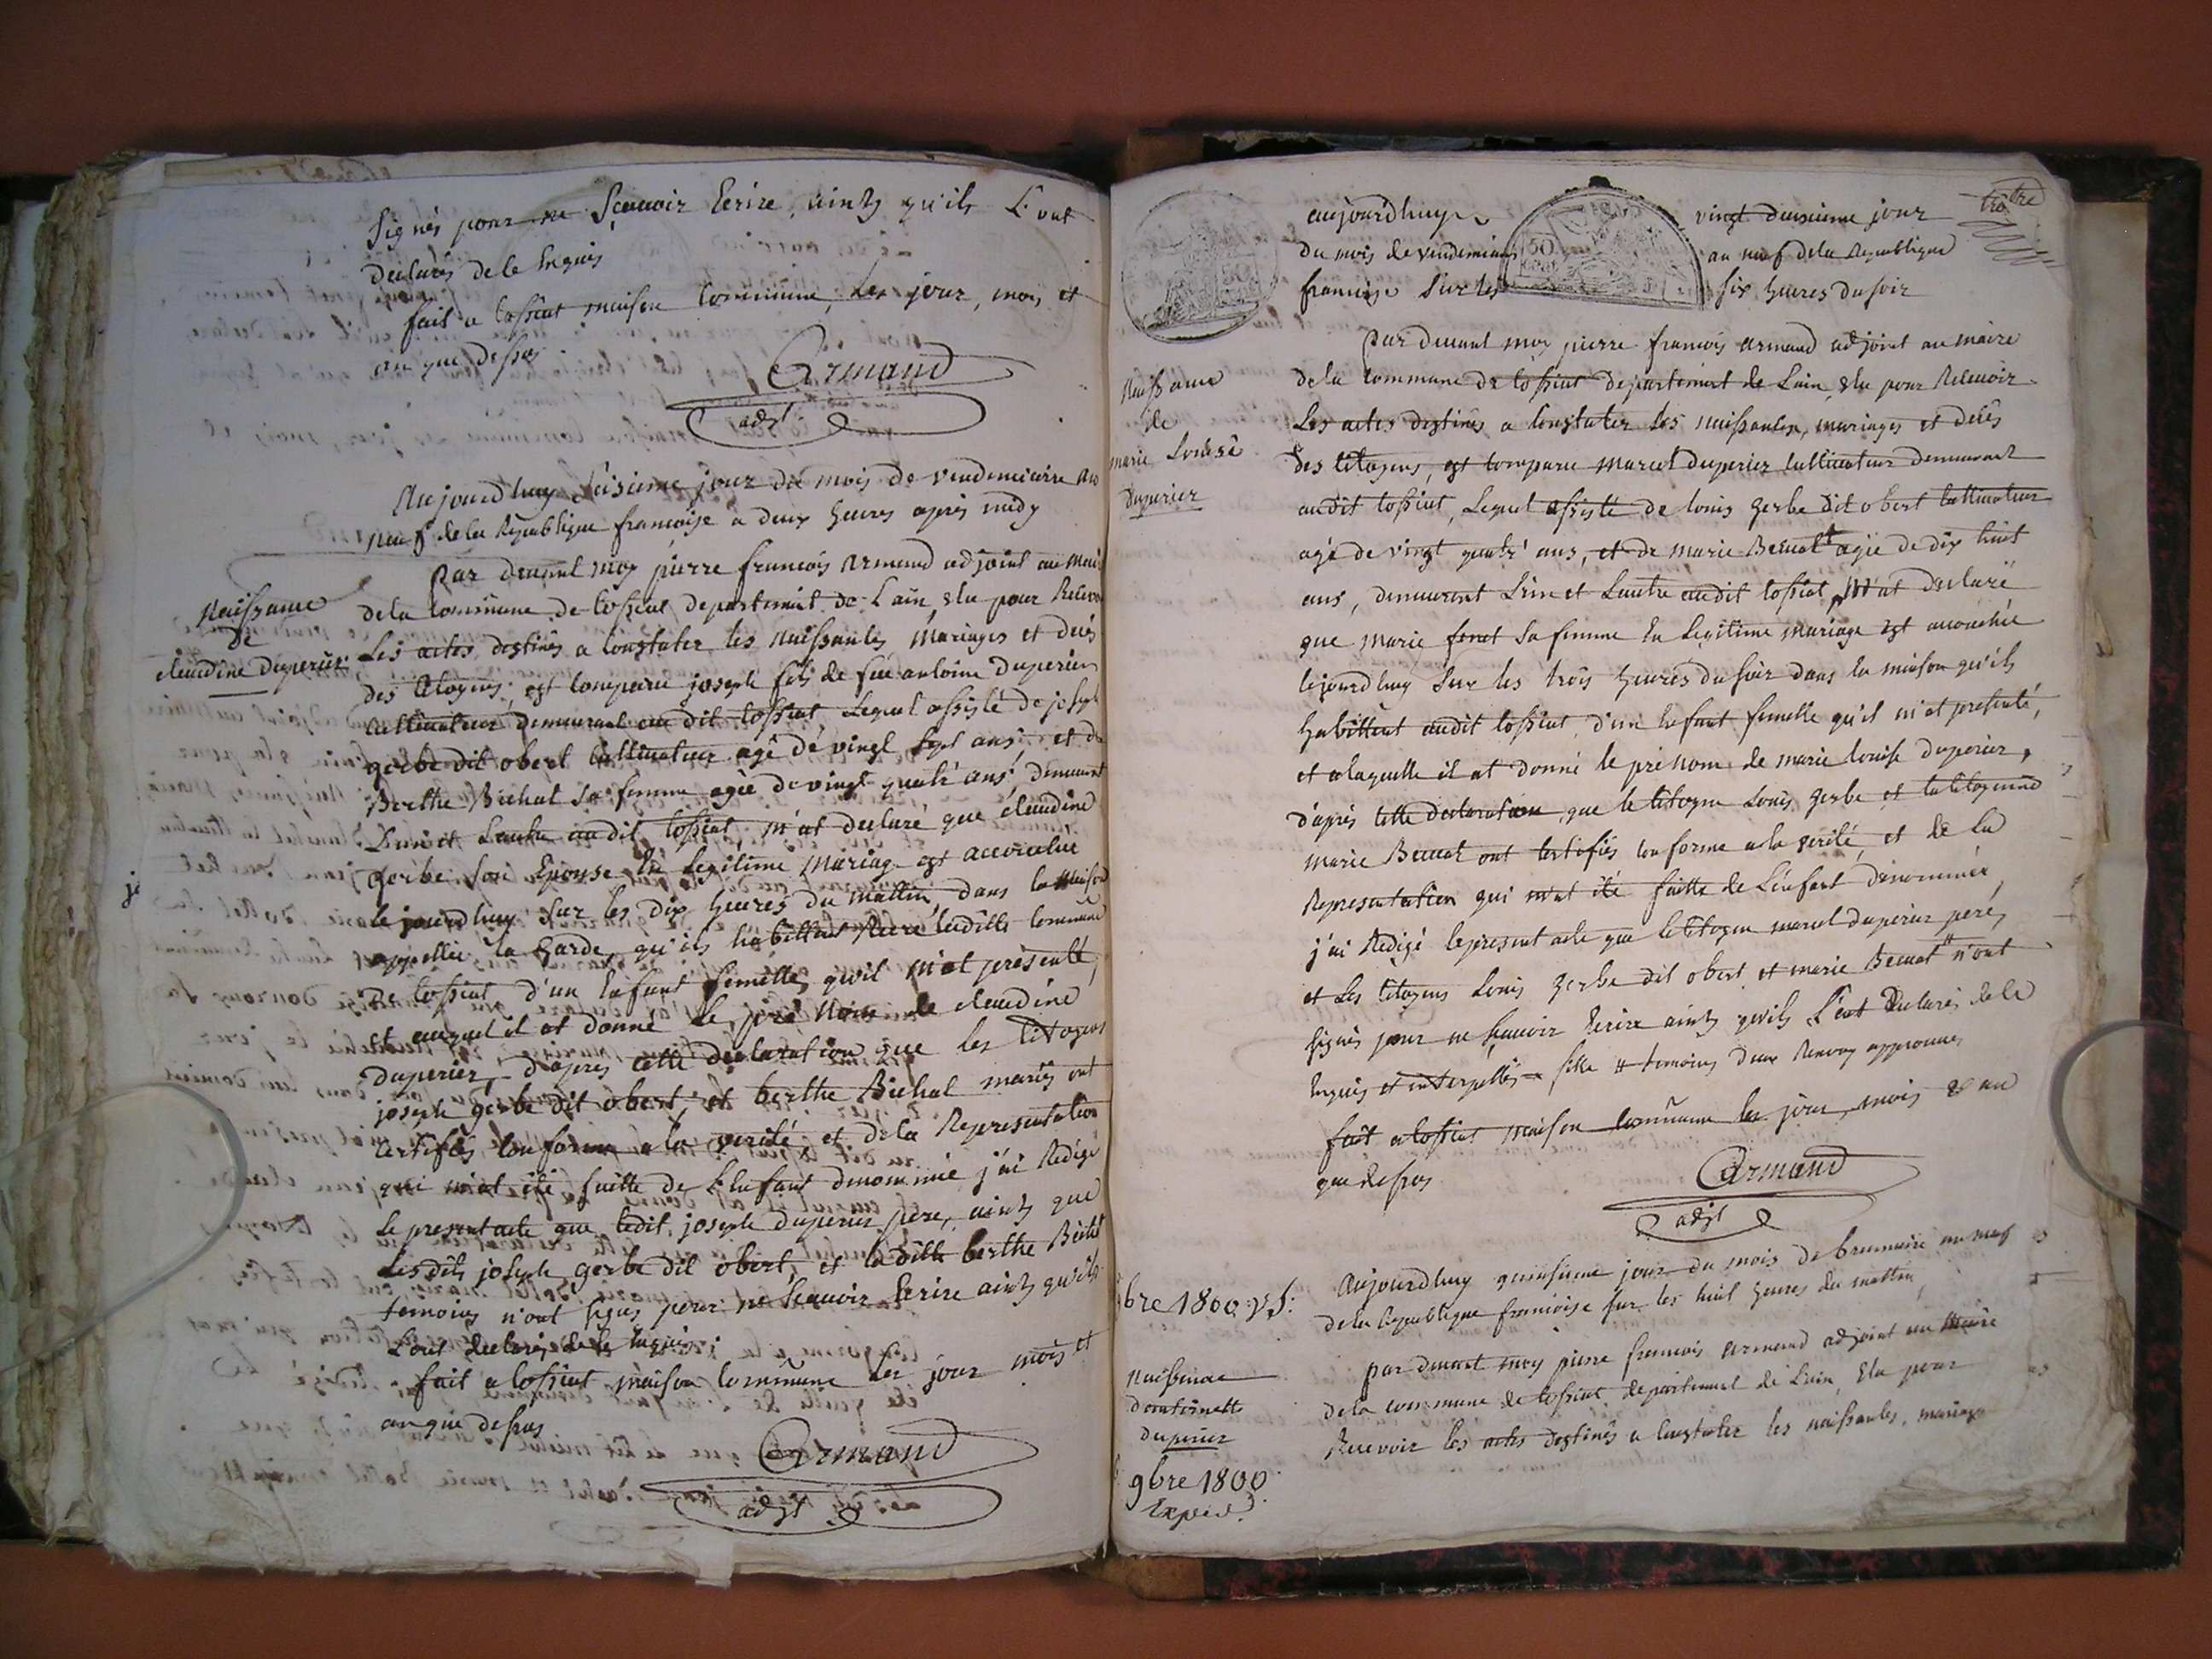 signés pour ne sçauoir Ecrire, ainsy qu'ils L'ont
declarés de le Enquis
fait a tossiat maison commune, Les jour, mois et
an que dessus
Armand
adjt
Naissance
de
claudine duperier
Aujourdhuy seisieme jour du mois de vendemiaire an
neuf dela Republique francoise a deux heures apres midy
par deuant moy pierre francois armand adjoint au mair
dela commune de tossiat departement de L'ain, elu pour Receuoir
Les actes destinés a constater les naissances, mariages et decés
des citoyens, est comparu joseph fils de feu antoine duperier
cultiuateur demeurant au dit tossiat Lequel assisté de joseph
gerbe dit obert cultiuateur agé de vingt sept ans, et de
Berthe Bichat sa femme agée de vingt quatre ans, demeurant
L'un et L'autre au dit tossiat m'at declaré que claudine
gerbe son Epouse En Legitime mariage est accouchée
cejourdhuy sur les dix heures du mattin, dans la maison
appellée la garde, qu'ils habittent Riere laditte commune
de tossiat d'un Enfant femelle, qu'il m'at presenté,
et auquel il at donné le pré nom de claudine
duperier, d'apres cette declaration que les citoyens
joseph gerbe dit obert, et berthe Bichat mariés ont
certifiés conforme a la verité, et de la Representation
qui m'at été faitte de L'Enfant denommée j'ai Redigé
Le present acte que ledit joseph duperier pere, ainsy que
Lesdits joseph gerbe dit obert, et la ditte berthe Bichat
temoins n'ont signés pour ne sçauoir Ecrire ainsy qu'ils
L'ont declarés de le Enquis
fait a tossiat maison commune Les jour mois et
an que dessus
Armand
adjt
trotre
aujourdhuy vingt deusieme jour
du mois de vendemiaire 50 an neuf dela Republique
francoise sur les six heures du soir
Naissance
de
marie Louise
duperier
par deuant moy pierre francois armand adjoint au maire
dela commune de tossiat departement de L'ain, elu pour Receuoir
Les actes destinés a constater les naissances, mariages et decés
des citoyens, est comparu marcel duperier cultiuateur demeurant
audit tossiat, Lequel assisté de louis gerbe dit obert cultiuateur
agé de vingt quatre ans, et de marie agée de dix huit
ans, demeurent L'un et L'autre audit tossiat, m'at declaré
que marie sa femme En Legitime mariage est accouchée
cejourdhuy sur les trois heures du soir dans la maison qu'ils
habittent audit tossiat, d'un Enfant femelle qu'il m'at presenté,
et a laquelle il at donné le pré nom de marie louise duperier,
d'aprés cette declaration, que le citoyen Louis gerbe et la citoyenne
marie ont certifiés conforme a la verité, et de la
Representation qui m'at été faitte de L'enfant denommée,
j'ai Redigé le present acte que le citoyen marcel duperier pere,
et Les citoyens Louis gerbe dit obert et marie n'ont
signés pour ne sçauoir Ecrire ainsy qu'ils L'ont declarés de le
Enquis et interpellés fille # temoins deux Renvoy approuués
fait a tossiat maison commune les jour, mois & an
que dessus
Armand
adjt
bre 1800. v.s.
Naissance
d'antoinette
duperier
9bre 1800
Exped.
Aujourdhuy quinsieme jour du mois de brumaire an neuf
dela Republique francoise sur les huit heures du mattin
par deuant moy pierre francois armand adjoint au maire
dela commune de tossiat departement de L'ain, Elu pour
Recevoir les actes destinés a constater les naissances, mariages